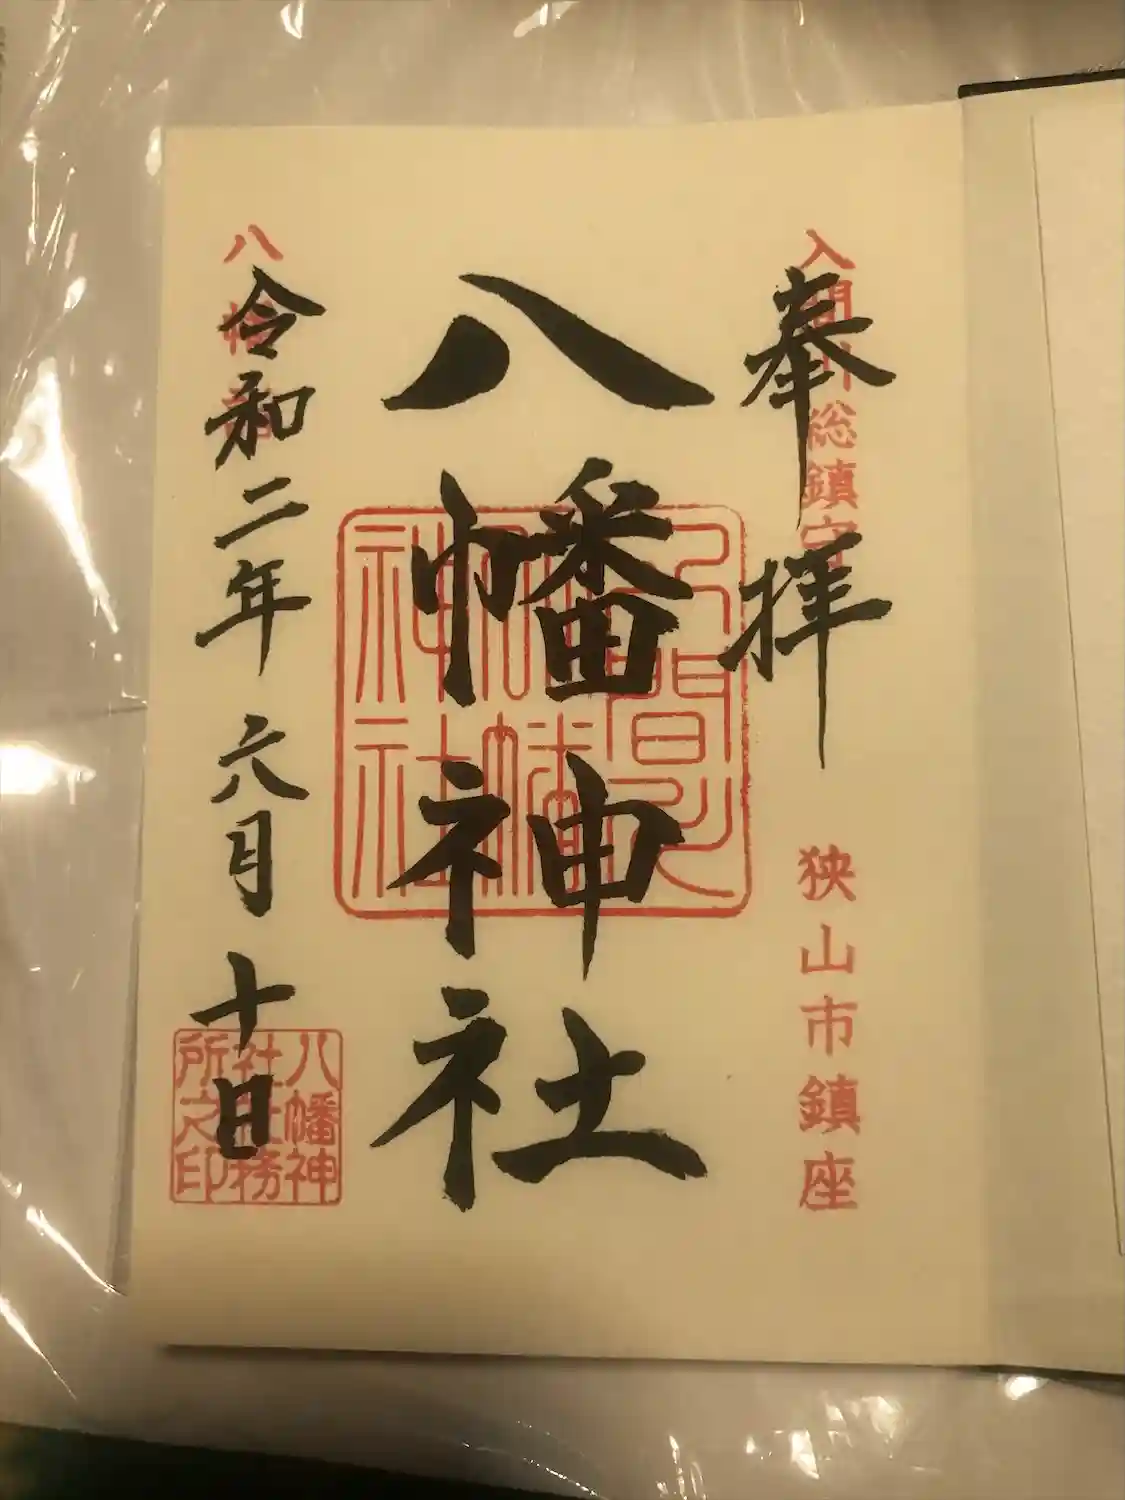 奉拝
入間川総鎮守
狭山市鎮座
八幡神社
入間川
八幡神社
令和二年六月十日
八幡神
社社務
所之印